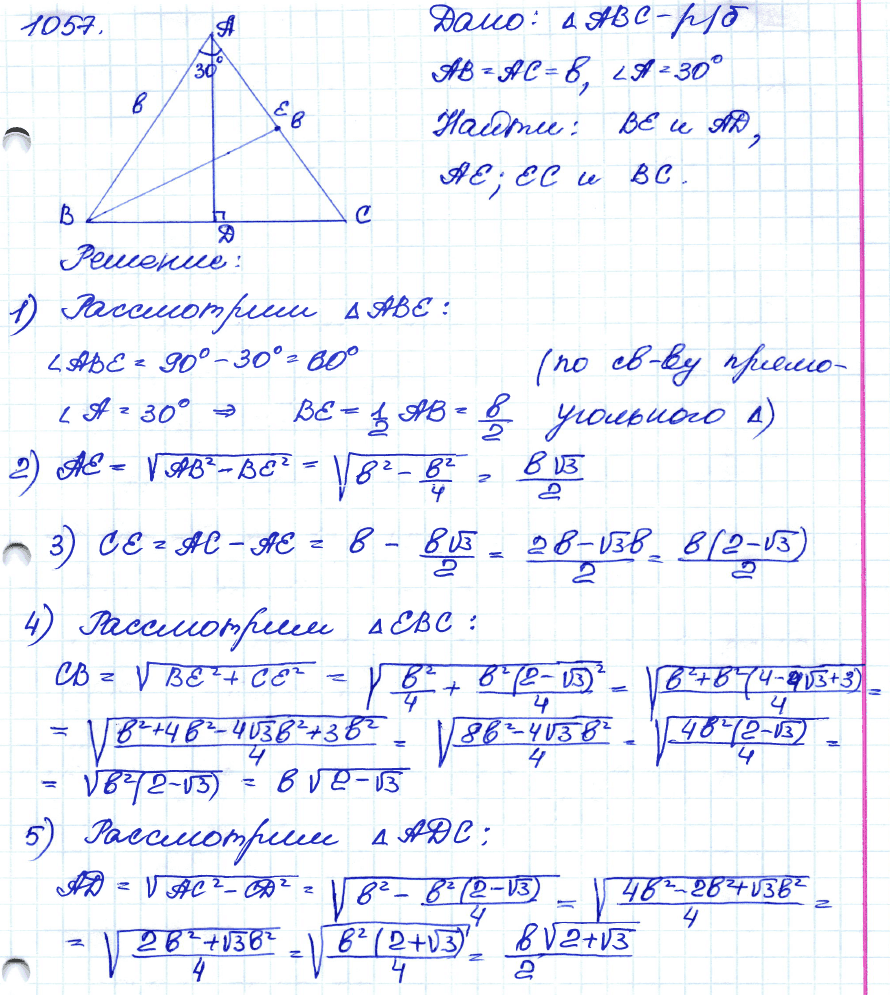 1057.
A
30°
в
E
в
B
D
C
Дано: △ABC - р/б
AB = AC = в, ∠A = 30°
Найти: BE и AD,
AE; EC и BC.
Решение:
1) Рассмотрим △ABE:
∠ABE = 90° - 30° = 60° (по св-ву прямо-
∠A = 30° ⇒ BE = 1/2 AB = в/2 угольного △)
2) AE = √(AB² - BE²) = √(в² - в²/4) = в√3/2
3) CE = AC - AE = в - в√3/2 = (2в - √3в)/2 = в(2 - √3)/2
4) Рассмотрим △EBC:
CB = √(BE² + CE²) = √(в²/4 + в²(2 - √3)²/4) = √((в² + в²(4 - 4√3 + 3))/4) =
= √((в² + 4в² - 4√3в² + 3в²)/4) = √((8в² - 4√3в²)/4) = √(4в²(2 - √3)/4) =
= √(в²(2 - √3)) = в√(2 - √3)
5) Рассмотрим △ADC;
AD = √(AC² - CD²) = √(в² - в²(2 - √3)/4) = √((4в² - 2в² + √3в²)/4) =
= √((2в² + √3в²)/4) = √(в²(2 + √3)/4) = в√(2 + √3)/2